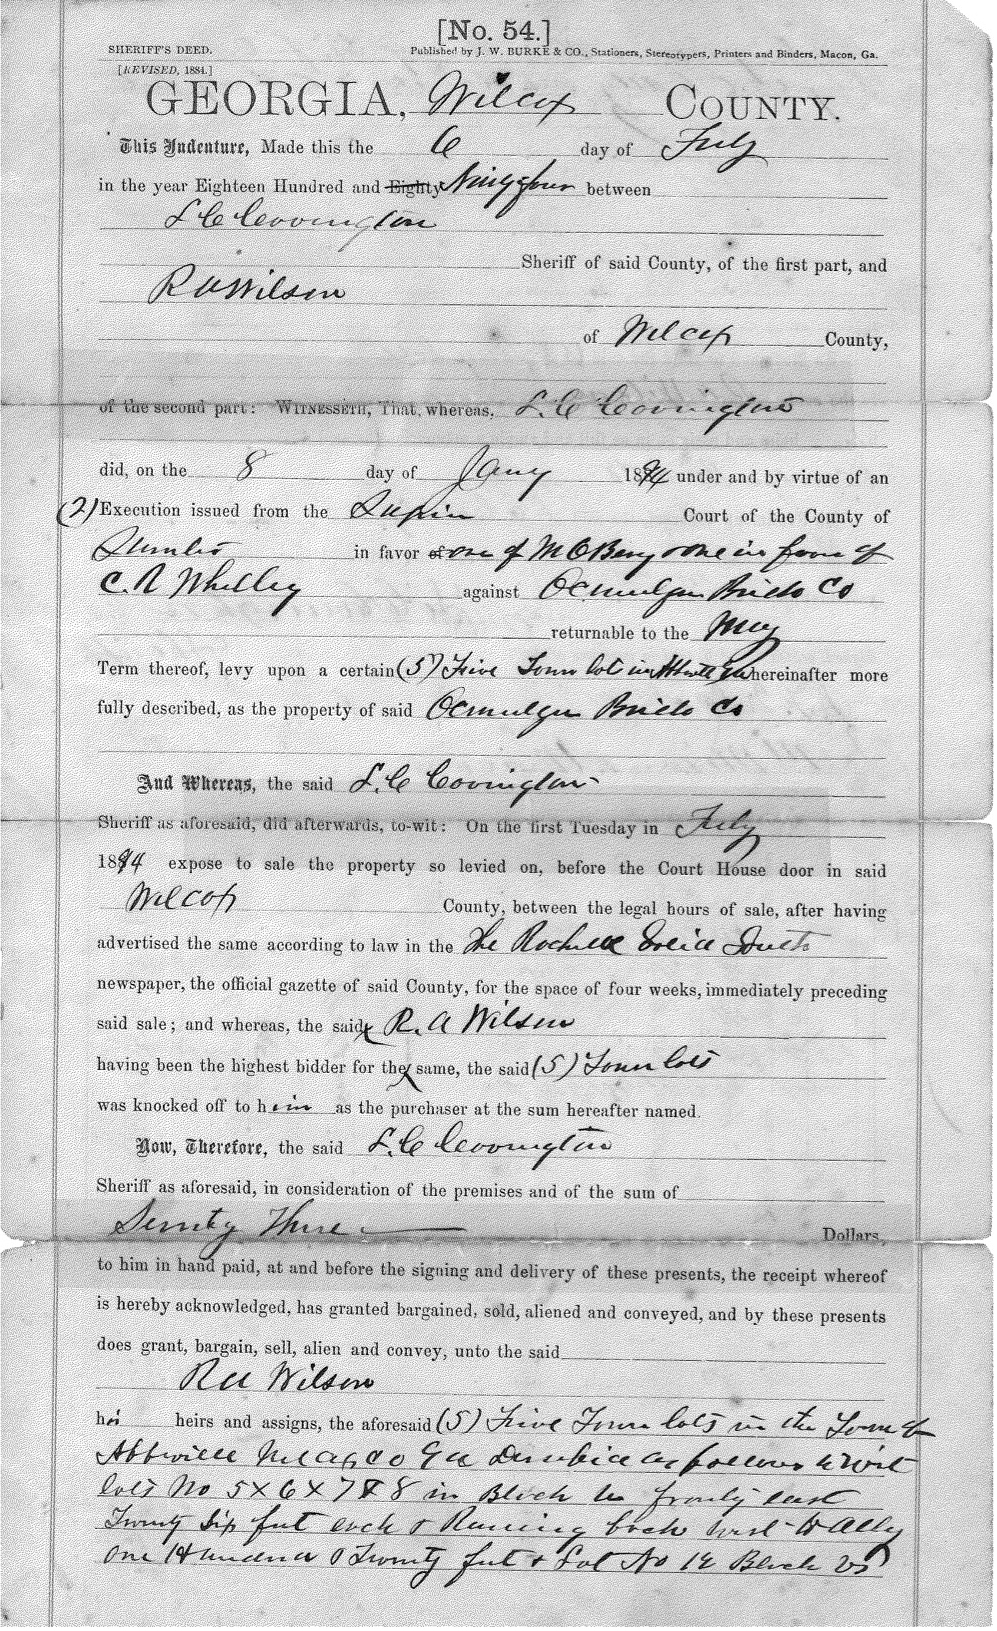 [No. 54.]
SHERIFF'S DEED. Published by J. W. BURKE & CO., Stationers, Stereotypers, Printers and Binders, Macon, Ga.
[REVISED, 1884.]
GEORGIA, Wilcox COUNTY.
This Indenture, Made this the 6 day of July
in the year Eighteen Hundred and Eighty Ninety four between
L C Covington
Sheriff of said County, of the first part, and
R A Wilson
of Wilcox County,
of the second part: WITNESSETH, That, whereas, L. C Covington
did, on the 8 day of Jany 1894 under and by virtue of an
(2) Execution issued from the Court of the County of
in favor of one of & one in favor of
C. R against Brick Co
returnable to the May
Term thereof, levy upon a certain (5) Five Town lots in Abbeville Ga hereinafter more
fully described, as the property of said Brick Co
And Whereas, the said L. C Covington
Sheriff as aforesaid, did afterwards, to-wit: On the first Tuesday in July
1894 expose to sale the property so levied on, before the Court House door in said
Wilcox County, between the legal hours of sale, after having
advertised the same according to law in the The Rochelle Solid South
newspaper, the official gazette of said County, for the space of four weeks, immediately preceding
said sale; and whereas, the said R. A Wilson
having been the highest bidder for the same, the said (5) Town lots
was knocked off to him as the purchaser at the sum hereafter named.
Now, Therefore, the said L. C Covington
Sheriff as aforesaid, in consideration of the premises and of the sum of
Three Dollars,
to him in hand paid, at and before the signing and delivery of these presents, the receipt whereof
is hereby acknowledged, has granted bargained, sold, aliened and conveyed, and by these presents
does grant, bargain, sell, alien and convey, unto the said
R A Wilson
his heirs and assigns, the aforesaid (5) Five Town lots in the Town of
Abbeville Ga as follows
lots No 5 X 6 X 7 & 8 in Block east
Twenty Six feet each & Running back west to Ally
one Hundred & Twenty feet & Lot No Block